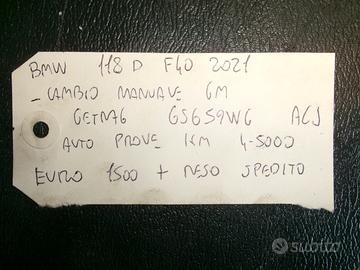 BMW 118 D F40 2021
- CAMBIO MANUALE 6M
GETRAG GS6S9WG ACJ
AUTO PROVE KM 4-5000
EURO 1500 + RESO SPEDITO
subito